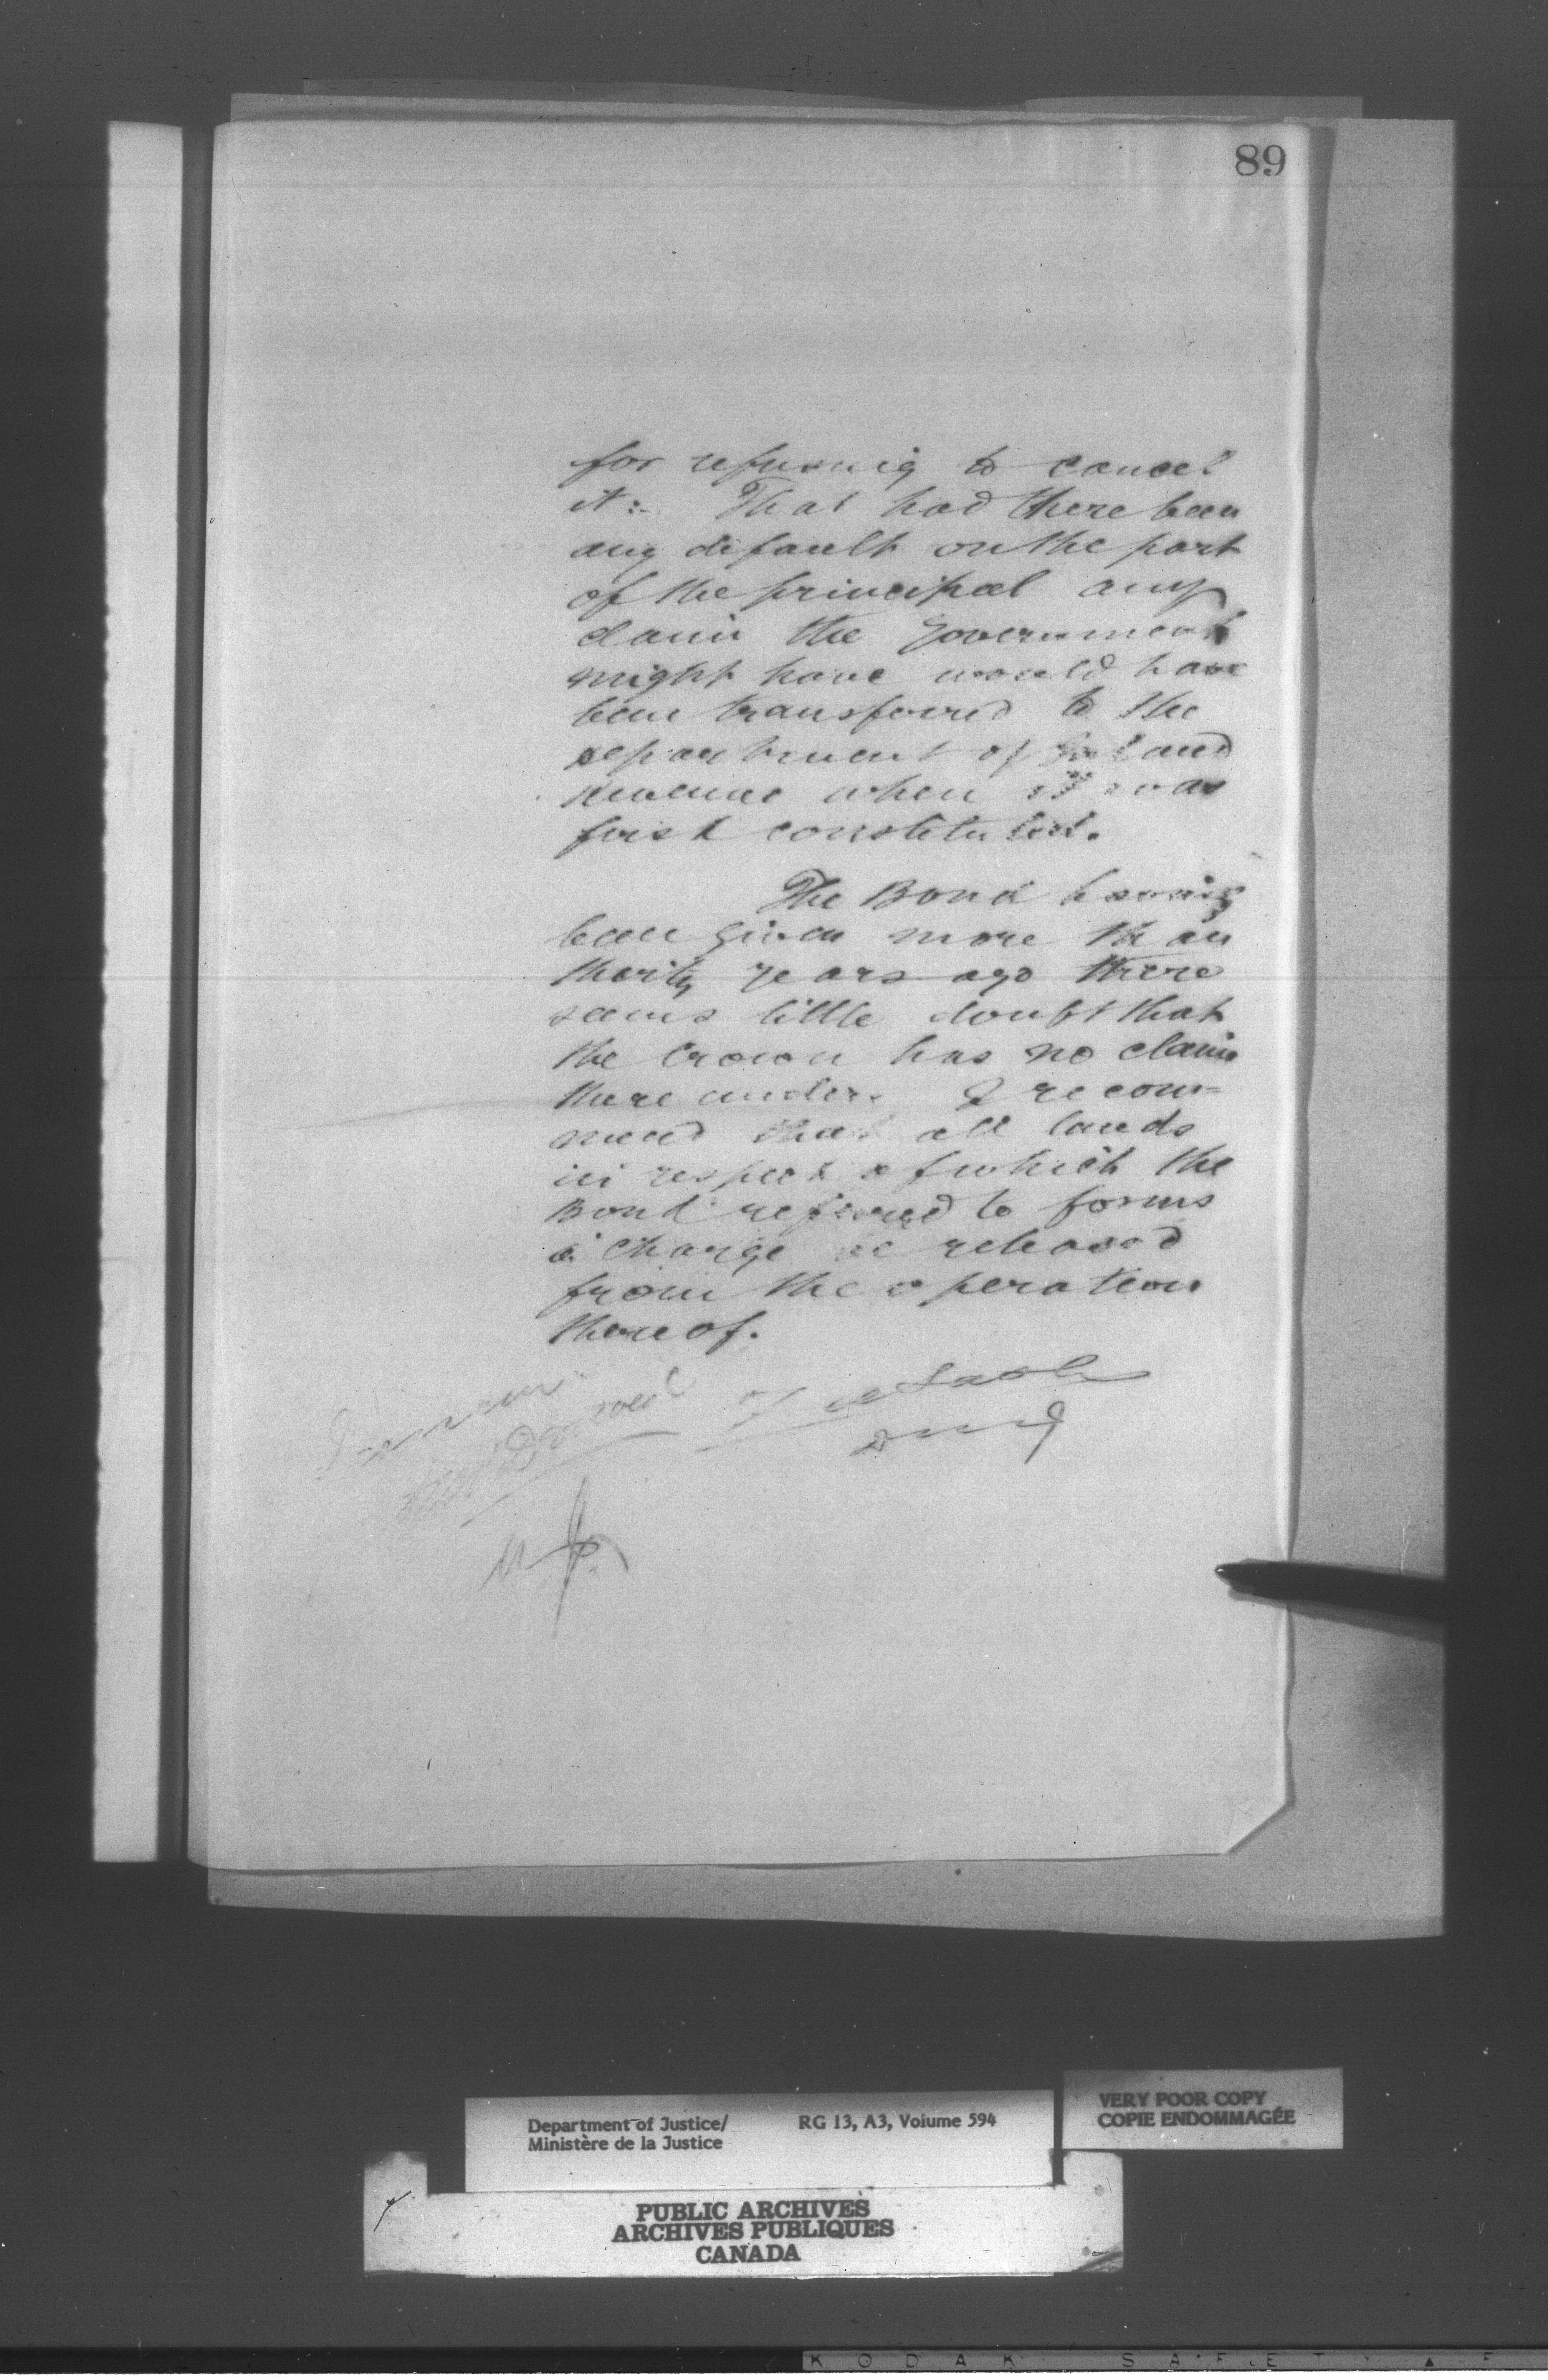 89
for refusing to cancel
it:- That had there been
any default on the part
of the principal any
claim the Government
might have would have
been transferred to the
department of Inland
Revenue when it was
first constituted.
The Bond having
been given more than
thirty years ago there
seems little doubt that
the Crown has no claim
thereunder. I recom=
mend that all lands
in respect of which the
Bond referred to forms
a charge be released
from the operation
thereof.
Department of Justice/
Ministère de la Justice
RG 13, A3, Volume 594
VERY POOR COPY
COPIE ENDOMMAGÉE
PUBLIC ARCHIVES
ARCHIVES PUBLIQUES
CANADA
KODAK SAFET